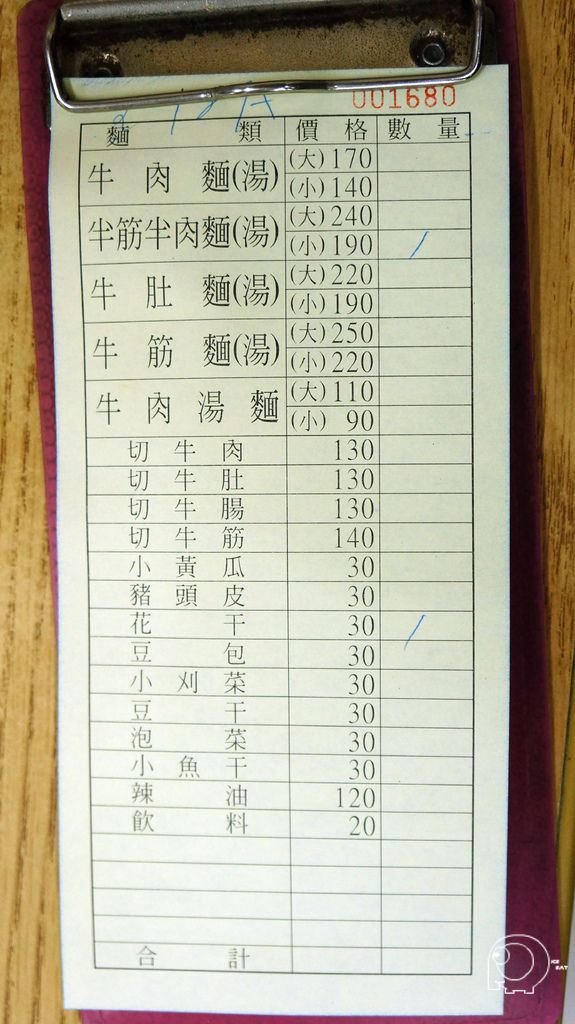 001680
麵類 價格 數量
牛肉麵(湯) (大)170
(小)140
半筋半肉麵(湯) (大)240
(小)190 /
牛肚麵(湯) (大)220
(小)190
牛筋麵(湯) (大)250
(小)220
牛肉湯麵 (大)110
(小)90
切牛肉 130
切牛肚 130
切牛腸 130
切牛筋 140
小黃瓜 30
豬頭皮 30
花干 30 /
豆包 30
小刈菜 30
豆干 30
泡菜 30
小魚干 30
辣油 120
飲料 20
合計